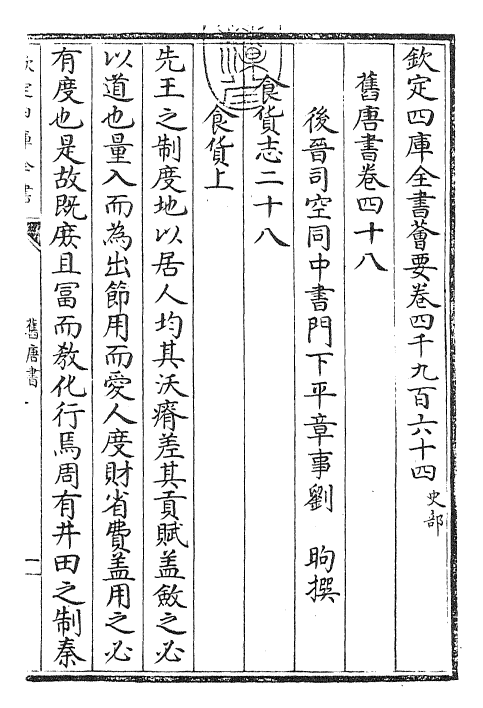 欽定四庫全書薈要卷四千九百六十四史部
舊唐書卷四十八
後晉司空同中書門下平章事劉　昫撰
食貨志二十八
食貨上
先王之制度地以居人均其沃瘠差其貢賦蓋斂之必
以道也量入而為出節用而愛人度財省費蓋用之必
有度也是故既庶且富而教化行焉周有井田之制秦
欽定四庫全書
舊唐書
一